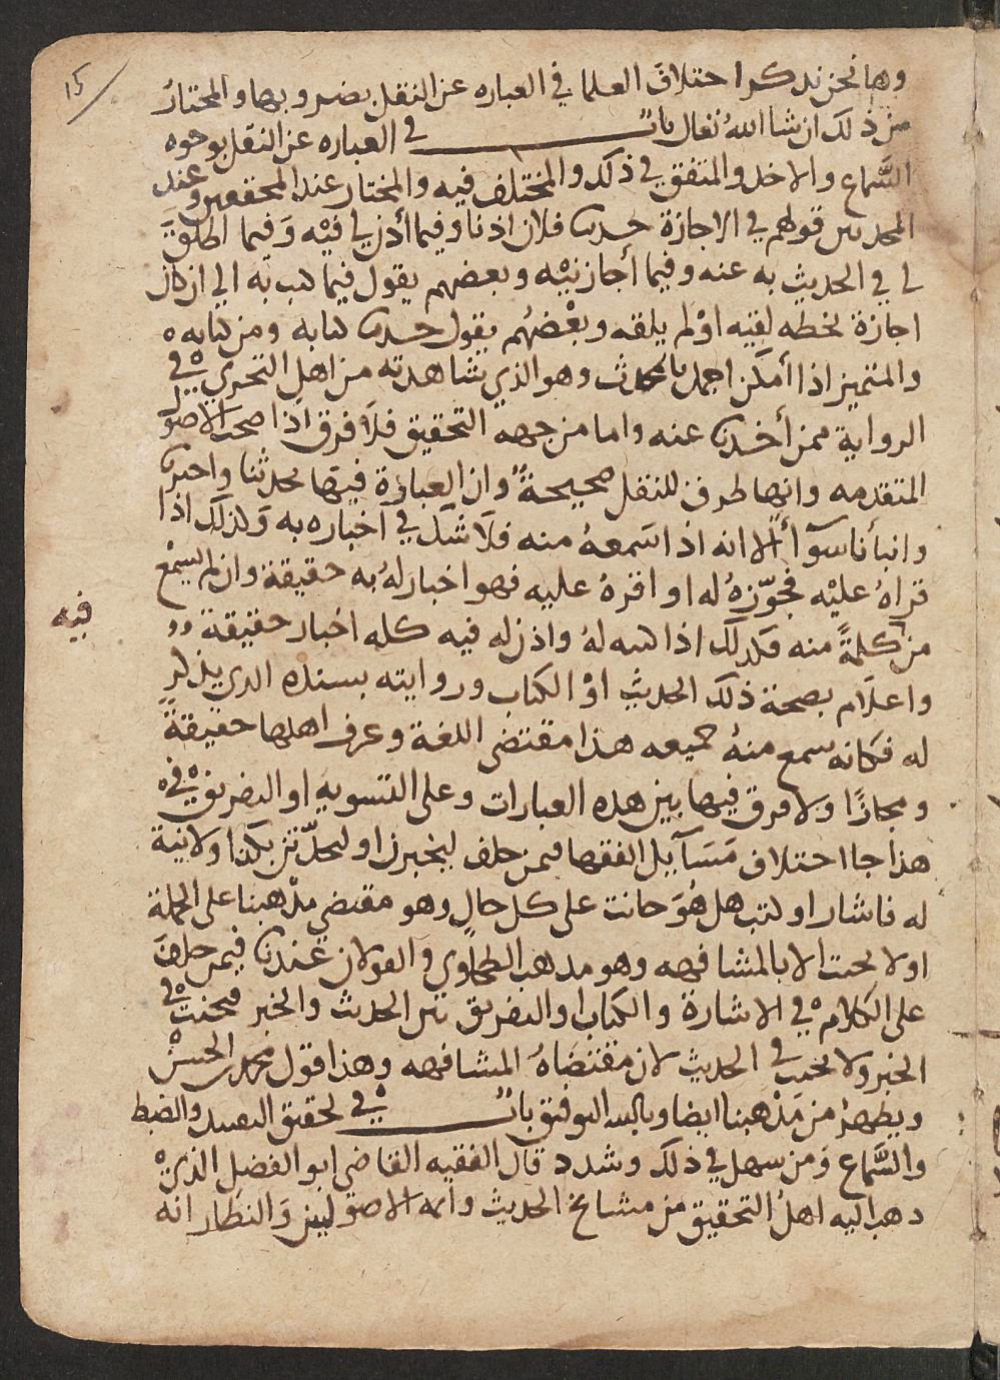 15
وها نحن نذكر اختلاف العلما في العباره عن النقل بضروبها والمختار
من ذلك ان شا الله تعالى باب في العباره عن النقل بوجوه
السَّماع والاخذ والمتفق في ذلك والمختلف فيه والمختار عند المحققين وعند
المحدثين قولهم في الاجازة حدثنا فلان اذنا وفيما أذن لي فيْه وَفيما اطلقَ
لي في الحديث به عنه وفيما أجازنيْه وبعضهم يقول فيما كتب به الي ان كان
اجازة بخطه لقيه اوْ لم يلقه وبعْضهُم يقول حدثنا كتابه ومن كتابه
والمتميز اذا أمكن اجمل بالمحدث وهو الذي شاهدته من اهل التحري في
الرواية ممن أخذنا عنه واما من جهه التحقيق فلا فرق اذا صحت الاصول
المتقدمه وانها طرق للنقل صحيحةً وان العبارة فيها بحدثنا واخبرنا
وانبأنا سوآأً الا انه اذا سَمعهُ منه فلا شك في اخباره به وَكذلك اذا
قراهُ عليْه فجوّزهُ له او اقرهُ عليه فهو اخبار لهُ به حقيقة وان لم يسمْع
من كلمةً منه فكذلك اذا كتبه لهُ واذن له فيه كله اخبار حقيقة
فيه
واعلام بصحة ذلك الحديث اوْ الكتاب وروايته بسنده الذي يذكر
له فكانه سمع منهُ جميعه هذا مقتضى اللغة وعرف اهلها حقيقةً
ومجازًا وَلا فرق فيها بين هذه العبارات وعلى التسويه او التفريق في
هذا جا اختلاف مَسَآيل الفقها فيمن حلف ليخبرن او ليحدّثن بكذا ولا نية
له فاشار او كتب هل هُوَ حانث على كل حالٍ وهو مقتضي مذْهبنا على الجملة
اولا يحنث الا بالمشافهه وهو مذهب الطحاوي والقولان عندنا فيمن حلفَ
على الكلام في الاشارة والكتاب او التفريق بين الحديث والخبر فيحنث في
الخبر ولا يحنث في الحديث لان مقتضاهُ المشافهه وهذا قول محمد بن الحسن
ويظهرُ من مَذْهبنا ايضا وبالله التوفيق باب في تحقيق التقييد والضبط
والسَّماع وَمن سهل في ذلك وشدد قال الفقيه القاضي ابو الفضل الذيْ
ذهب اليه اهلُ التحقيق من مشايخ الحديث وايمه الاصوليين وَالنظار انه